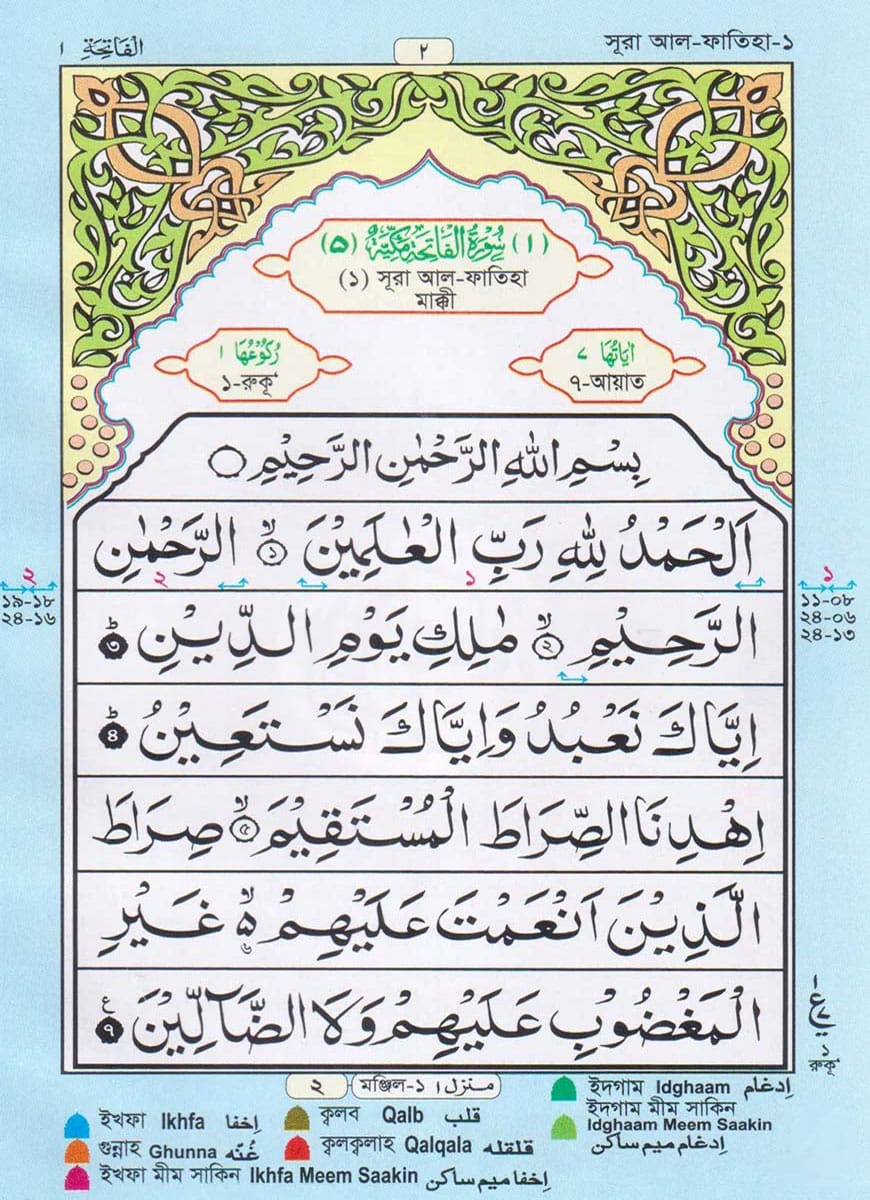 الفَاتِحَة ١ ٢ সূরা আল-ফাতিহা-১
(١) سُوْرَةُ الْفَاتِحَةِ مَكِّيَّةٌ (٥)
(১) সূরা আল-ফাতিহা
মাক্কী
اٰيَاتُهَا ٧ رُكُوْعُهَا ١
৭-আয়াত ১-রুকূ‘
بِسْمِ اللهِ الرَّحْمٰنِ الرَّحِيْمِ
اَلْحَمْدُ لِلّٰهِ رَبِّ الْعٰلَمِيْنَ ۙ ১ الرَّحْمٰنِ
الرَّحِيْمِ ۙ ২ مٰلِكِ يَوْمِ الدِّيْنِ ؕ ৩
اِيَّاكَ نَعْبُدُ وَاِيَّاكَ نَسْتَعِيْنُ ؕ ৪
اِهْدِنَا الصِّرَاطَ الْمُسْتَقِيْمَ ۙ ৫ صِرَاطَ
الَّذِيْنَ اَنْعَمْتَ عَلَيْهِمْ ۙ ৬ غَيْرِ
الْمَغْضُوْبِ عَلَيْهِمْ وَلَا الضَّآلِّيْنَ ع ৭
১
১১-০৮
২৪-০৬
২৪-১৩
২
১৯-১৮
২৪-১৬
১
রুকূ‘
২ মঞ্জিল-১ منزل ١
ইখফা Ikhfa إخفا
গুন্নাহ Ghunna غُنّه
ইখফা মীম সাকিন Ikhfa Meem Saakin إخفا میم ساکن
ক্বলব Qalb قلب
ক্বলক্বলাহ Qalqala قلقله
ইদগাম Idghaam إدغام
ইদগাম মীম সাকিন
Idghaam Meem Saakin
إدغام میم ساکن